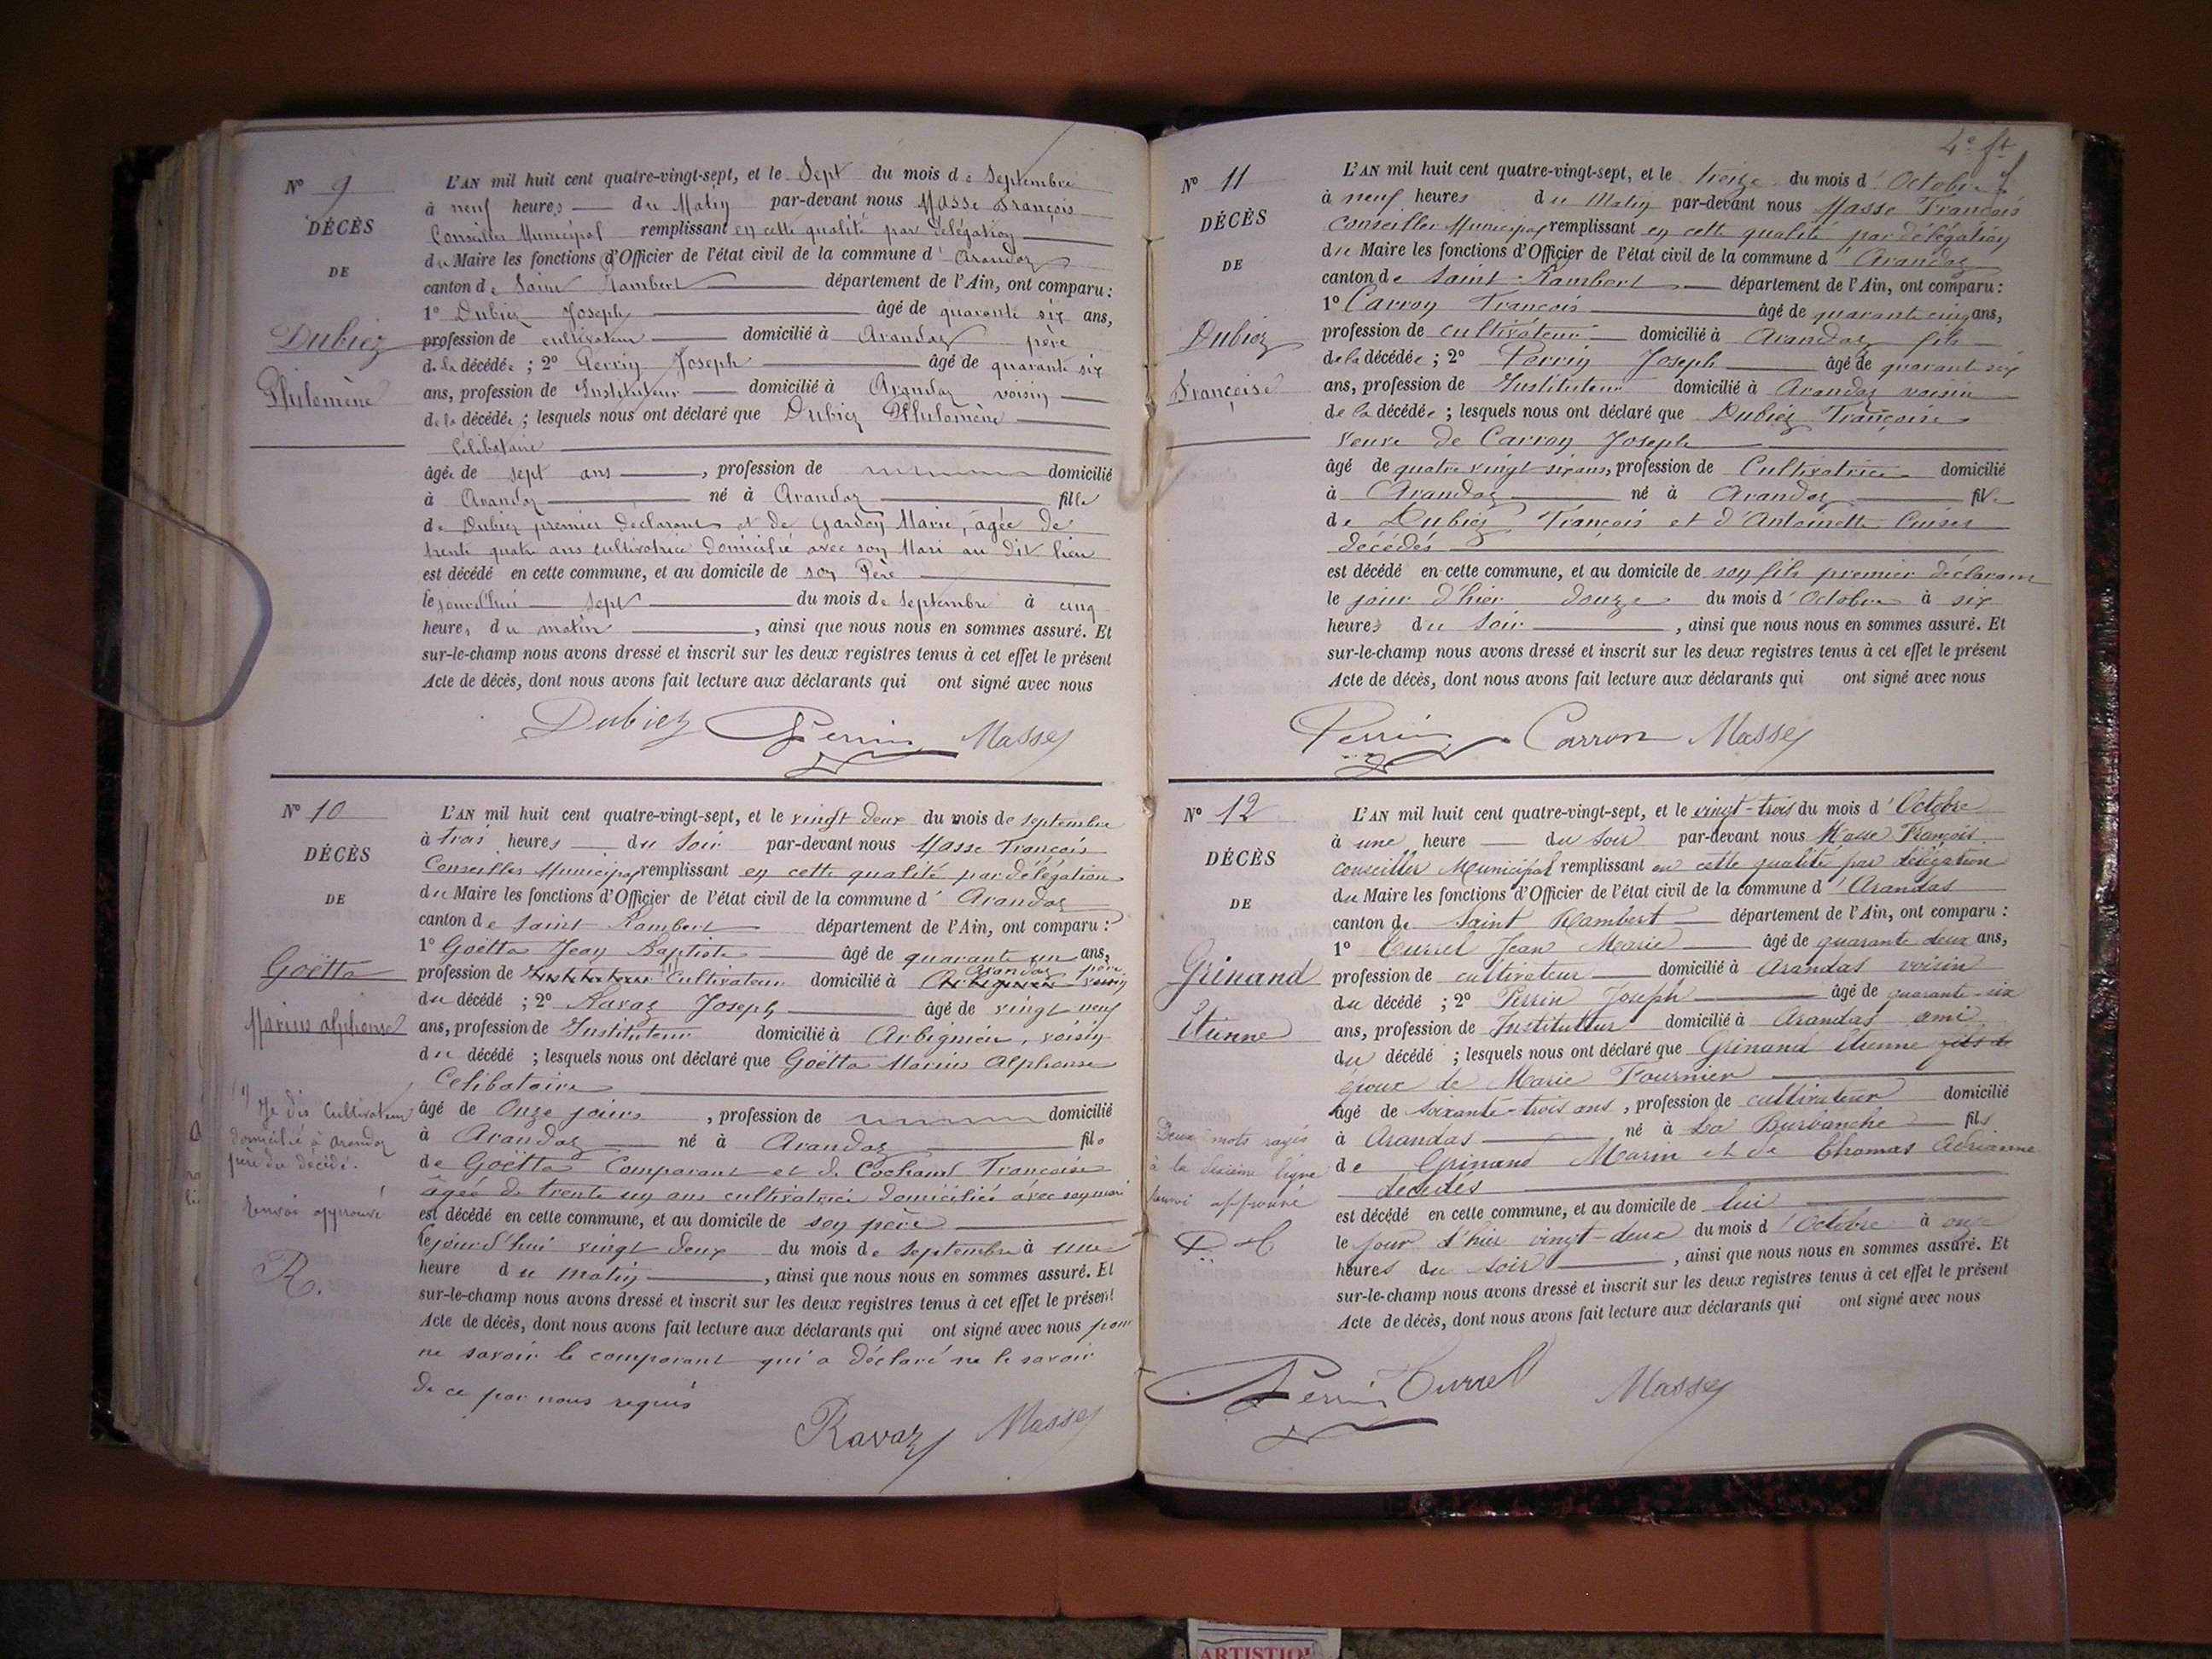 N° 9
DÉCÈS
DE
Dubiez
Philomène
L'AN mil huit cent quatre-vingt-sept, et le Sept du mois de Septembre
à neuf heures du Matin par-devant nous Masse François
Conseiller Municipal remplissant en cette qualité par délégation
du Maire les fonctions d'Officier de l'état civil de la commune d'Arandaz
canton de Saint Rambert département de l'Ain, ont comparu :
1° Dubiez Joseph âgé de quarante six ans,
profession de cultivateur domicilié à Arandaz père
de la décédée ; 2° Perrin Joseph âgé de quarante six
ans, profession de Instituteur domicilié à Arandaz voisin
de la décédée ; lesquels nous ont déclaré que Dubiez Philomène
Célibataire
âgée de sept ans, profession de domicilié
à Arandaz né à Arandaz fille
de Dubiez premier déclarant et de Gardon Marie, âgée de
trente quatre ans cultivatrice domicilié avec son Mari au dit lieu
est décédé en cette commune, et au domicile de son Père
le jourd'hui sept du mois de Septembre à cinq
heures du matin, ainsi que nous nous en sommes assuré. Et
sur-le-champ nous avons dressé et inscrit sur les deux registres tenus à cet effet le présent
Acte de décès, dont nous avons fait lecture aux déclarants qui ont signé avec nous
Dubiez Perrin Masse
N° 10
DÉCÈS
DE
Goëtta
Marius alphonse
(1) Je dis Cultivateur
domicilié à Arandaz
père du décédé.
Renvoi approuvé
R.
L'AN mil huit cent quatre-vingt-sept, et le vingt deux du mois de septembre
à trois heures du Soir par-devant nous Masse François
Conseiller Municipal remplissant en cette qualité par délégation
du Maire les fonctions d'Officier de l'état civil de la commune d'Arandaz
canton de Saint Rambert département de l'Ain, ont comparu :
1° Goëtta Jean Baptiste âgé de quarante un ans,
profession de Instituteur Cultivateur domicilié à Arbignieu voisin Arandaz père
du décédé ; 2° Ravaz Joseph âgé de vingt neuf
ans, profession de Instituteur domicilié à Arbignieu, voisin
du décédé ; lesquels nous ont déclaré que Goëtta Marius Alphonse
Célibataire
âgé de Onze jours, profession de domicilié
à Arandaz né à Arandaz fils
de Goëtta Comparant et d. Cochand Françoise
âgée de trente un ans cultivatrice domiciliée avec son mari
est décédé en cette commune, et au domicile de son père
le jourd'hui vingt deux du mois de Septembre à une
heure du matin, ainsi que nous nous en sommes assuré. Et
sur-le-champ nous avons dressé et inscrit sur les deux registres tenus à cet effet le présent
Acte de décès, dont nous avons fait lecture aux déclarants qui ont signé avec nous pour
ne savoir le comparant qui a déclaré ne le savoir
de ce par nous requis
Ravaz Masse
4e ft
N° 11
DÉCÈS
DE
Dubiez
Françoise
L'AN mil huit cent quatre-vingt-sept, et le treize du mois d'Octobre
à neuf heures du Matin par-devant nous Masse François
Conseiller Municipal remplissant en cette qualité par délégation
du Maire les fonctions d'Officier de l'état civil de la commune d'Arandaz
canton de Saint-Rambert département de l'Ain, ont comparu :
1° Carron François âgé de quarante cinq ans,
profession de cultivateur domicilié à Arandaz fils
de la décédée ; 2° Perrin Joseph âgé de quarante six
ans, profession de Instituteur domicilié à Arandaz voisin
de la décédée ; lesquels nous ont déclaré que Dubiez Françoise
veuve de Carron Joseph
âgé de quatre vingt six ans, profession de Cultivatrice domicilié
à Arandaz né à Arandaz fille
de Dubiez François et d'Antoinette Cuiset
décédés
est décédé en cette commune, et au domicile de son fils premier déclarant
le jour d'hier douze du mois d'Octobre à six
heures du Soir, ainsi que nous nous en sommes assuré. Et
sur-le-champ nous avons dressé et inscrit sur les deux registres tenus à cet effet le présent
Acte de décès, dont nous avons fait lecture aux déclarants qui ont signé avec nous
Perrin Carron Masse
N° 12
DÉCÈS
DE
Grinand
Etienne
Deux mots rayés
à la dixième ligne
renvoi approuvé
L'AN mil huit cent quatre-vingt-sept, et le vingt-trois du mois d'Octobre
à une heure du Soir par-devant nous Masse François
conseiller Municipal remplissant en cette qualité par délégation
du Maire les fonctions d'Officier de l'état civil de la commune d'Arandas
canton de Saint Rambert département de l'Ain, ont comparu :
1° Currel Jean Marie âgé de quarante deux ans,
profession de cultivateur domicilié à Arandas voisin
du décédé ; 2° Perrin Joseph âgé de quarante-six
ans, profession de Instituteur domicilié à Arandas ami
du décédé ; lesquels nous ont déclaré que Grinand Etienne fils de
époux de Marie Fournier
âgé de soixante-trois ans, profession de cultivateur domicilié
à Arandas né à La Burbanche fils
de Grinand Marin et de Thomas Adrianne
décédés
est décédé en cette commune, et au domicile de lui
le jour d'hier vingt-deux du mois d'Octobre à onze
heures du soir, ainsi que nous nous en sommes assuré. Et
sur-le-champ nous avons dressé et inscrit sur les deux registres tenus à cet effet le présent
Acte de décès, dont nous avons fait lecture aux déclarants qui ont signé avec nous
Perrin Currel Masse
ARTISTIQU